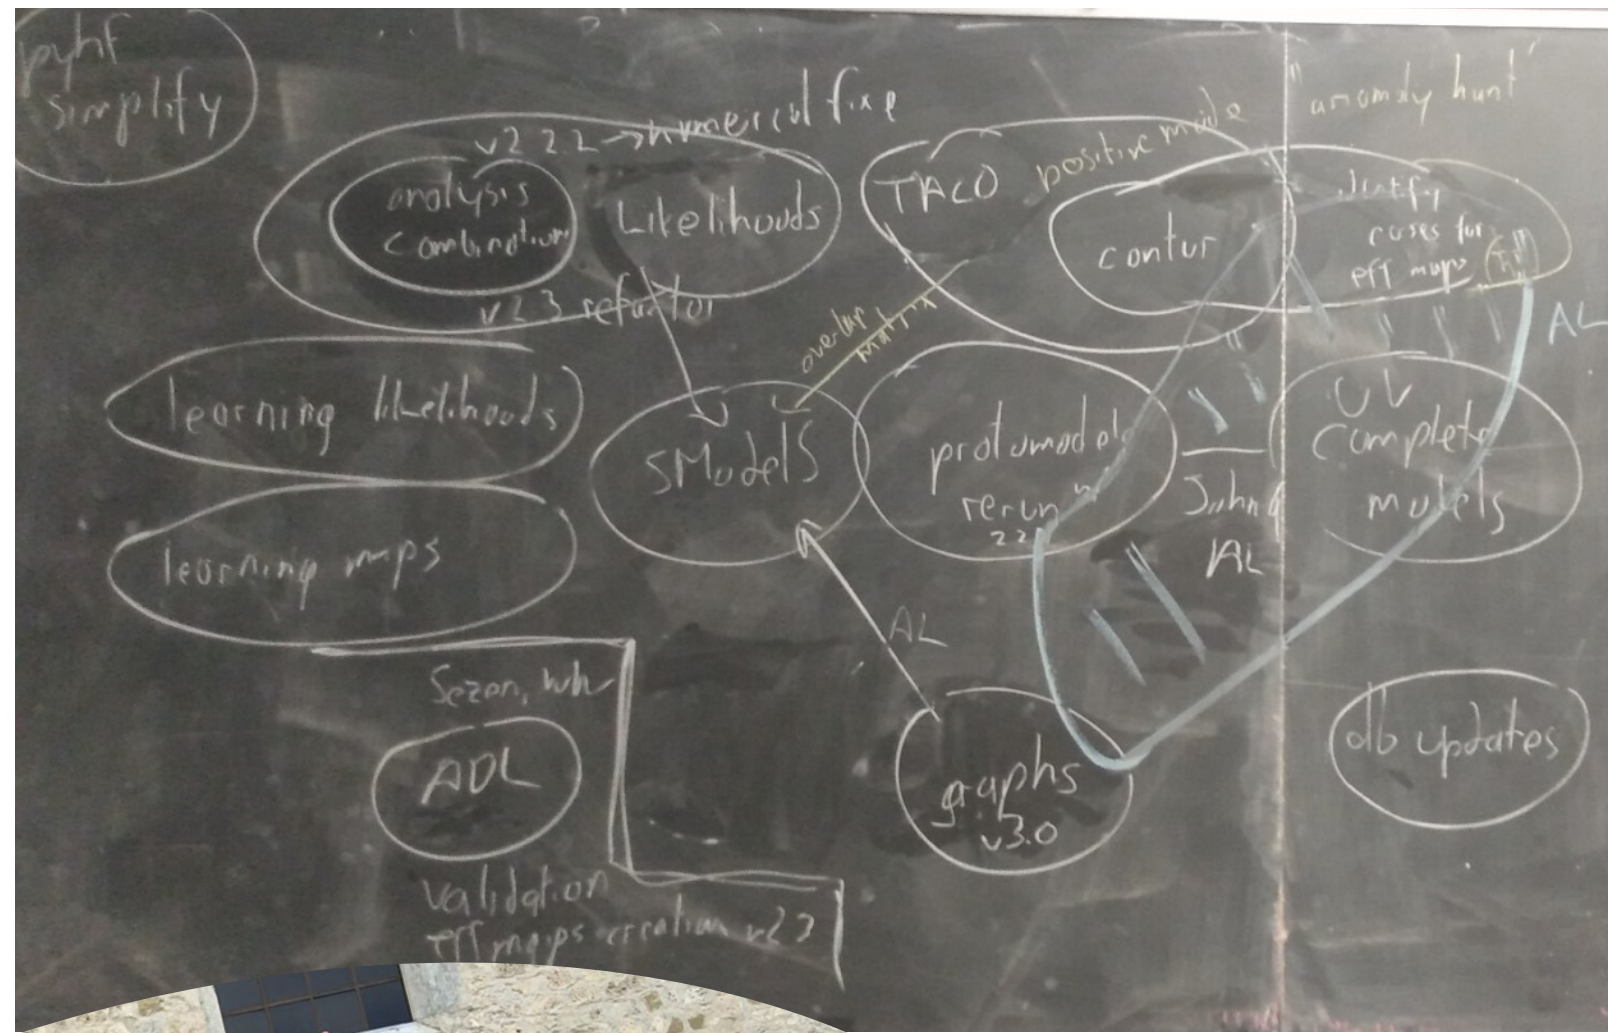 pyhf
simplify
v2 2 2 → numerical fixe
analysis
combination
Likelihoods
v2 3 refactor
TACO
positive mode
anomaly hunt
contur
identify
cases for
eff maps
AL
overlap
matrix
learning likelihoods
learning maps
SModelS
protomodels
rerun
22
John
AL
UV
Complete
models
AL
Sezen, wh
ADL
graphs
v3.0
db updates
validation
eff maps creation v2 3